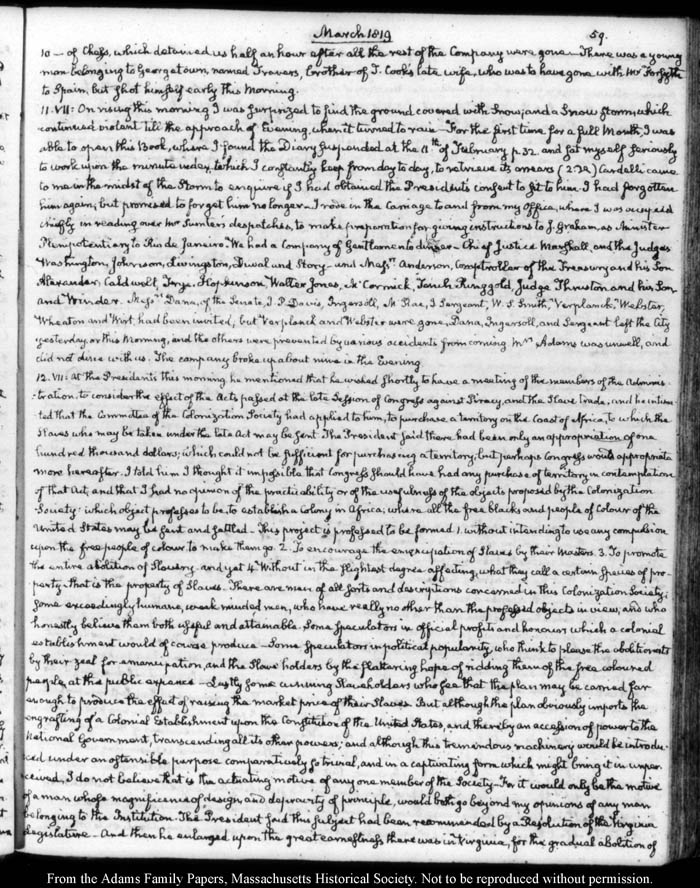 March 1819
59.
10 — of Chess, which detained us half an hour after all the rest of the Company were gone — There was a young
man belonging to Georgetown, named Travers, brother of J. Cook's late wife, who was to have gone with Mr Forsyth
to Spain, but shot himself early this Morning.
11. VII: On rising this morning I was surprized to find the ground covered with Snow; and a Snow storm, which
continued violent till the approach of Evening, when it turned to rain — For the first time for a full Month, I was
able to open this Book, where I found the Diary suspended at the 11th of February p. 32 and set myself seriously
to work upon the minute index, which I constantly keep from day to day, to retrieve its arrears (272) Cardelli came
to me in the midst of the Storm to enquire if I had obtained the President's consent to sit to him. I had forgotten
him again; but promised to forget him no longer — I rode in the Carriage to and from my Office, where I was occupied
chiefly in reading over Mr Sumter's despatches, to make preparation for giving instructions to J. Graham, as Minister
Plenipotentiary to Rio de Janeiro. We had a Company of Gentlemen to dinner — Chief Justice Marshall, and the Judges
Washington, Johnson, Livingston, Duval and Story — and Messrs Anderson, Comptroller of the Treasury and his Son
Alexander, Caldwell, Frye, Hopkinson, Walter Jones, McCormick, Tench Ringgold, Judge Thruston and his Son
and Winder. Messrs Dana, of the Senate, I. P. Davis, Ingersoll, McRae, J Sergeant, W. S. Smith, Verplanck, Webster,
Wheaton and Wirt, had been invited; but Verplanck and Webster were gone, Dana, Ingersoll, and Sergeant left the City
yesterday, or this Morning, and the others were prevented by various accidents from coming. Mrs Adams was unwell, and
did not dine with us. The company broke up about nine in the Evening
12. VII: At the President's this morning he mentioned that he wished shortly to have a meeting of the members of the Adminis-
-tration, to consider the effect of the Acts passed at the late Session of Congress against Piracy, and the Slave trade; and he intima
ted that the Committee of the Colonization Society had applied to him, to purchase a territory on the Coast of Africa, to which the
Slaves who may be taken under the late Act may be sent. The President said there had been only an appropriation of one
hundred thousand dollars; which could not be sufficient for purchasing a territory; but perhaps Congress would appropriate
more hereafter. I told him I thought it impossible that Congress should have had any purchase of territory in contemplation
of that Act, and that I had no opinion of the practicability or of the usefulness of the objects proposed by the Colonization
Society: which object professes to be, to establish a Colony in Africa, where all the free blacks and people of Colour of the
United States may be sent and settled. This project is professed to be formed 1. without intending to use any compulsion
upon the free people of colour to make them go. 2. To encourage the emancipation of Slaves by their Masters. 3. To promote
the entire abolition of Slavery — and yet 4. Without in the slightest degree affecting, what they call a certain species of pro-
perty — that is the property of Slaves. There are men of all sorts and descriptions concerned in this Colonization Society;
Some exceedingly humane, weak minded men, who have really no other than the professed objects in view, and who
honestly believe them both useful and attainable. Some Speculators in official profits and honours which a colonial
establishment would of course produce — Some speculators in political popularity, who think to please the abolitionists
by their zeal for emancipation, and the Slave holders by the flattering hope of ridding them of the free coloured
people, at the public expence — Lastly some cunning Slaveholders who see that the plan may be carried far
enough to produce the effect of raising the market price of their Slaves. But although the plan obviously imports the
engrafting of a Colonial Establishment upon the Constitution of the United States, and thereby an accession of power to the
National Government, transcending all its other powers; and although this tremendous machinery would be introdu-
ced under an ostensible purpose comparatively so trivial, and in a captivating form which might bring it in unper-
ceived, I do not believe that is the actuating motive of any one member of the Society — For it would only be the motive
of a man whose magnificence of design, and depravity of principle, would both go beyond my opinions of any man
belonging to the Institution. The President said this subject had been recommended by a Resolution of the Virginia
Legislature — And then he enlarged upon the great earnestness there was in Virginia, for the gradual abolition of
From the Adams Family Papers, Massachusetts Historical Society. Not to be reproduced without permission.